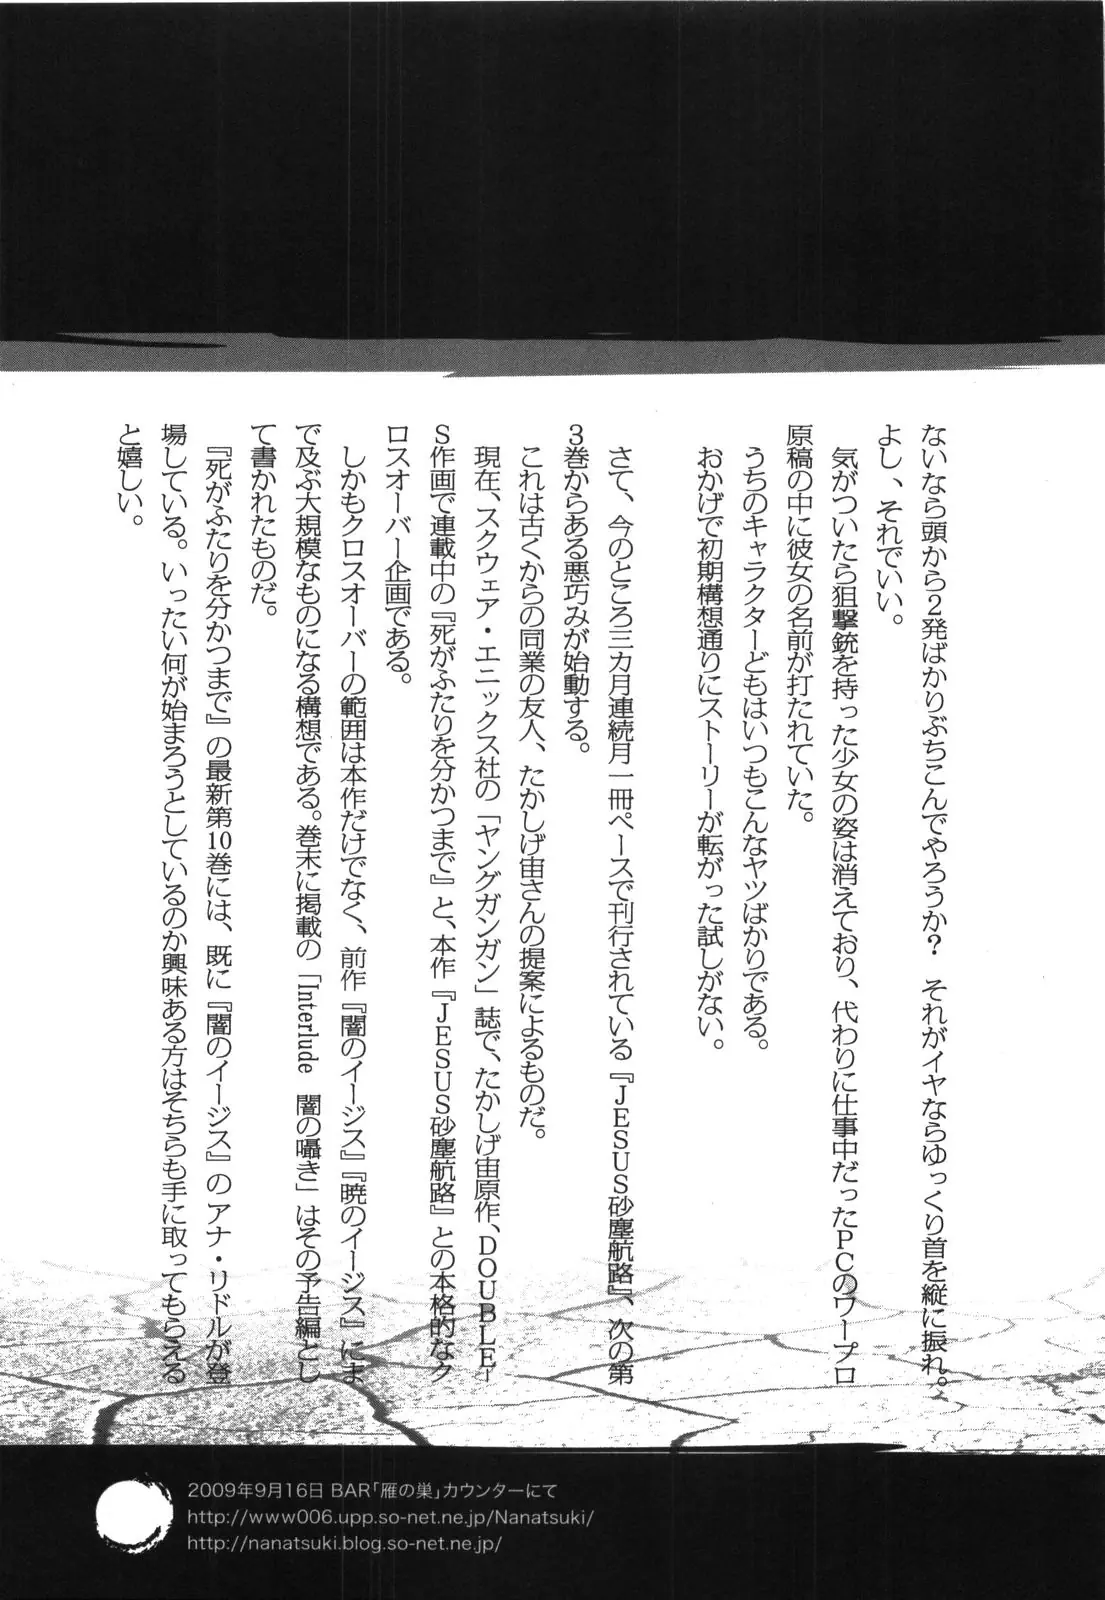 ないなら頭から2発ばかりぶちこんでやろうか？　それがイヤならゆっくり首を縦に振れ。
よし、それでいい。
気がついたら狙撃銃を持った少女の姿は消えており、代わりに仕事中だったPCのワープロ
原稿の中に彼女の名前が打たれていた。
うちのキャラクターどもはいつもこんなヤツばかりである。
おかげで初期構想通りにストーリーが転がった試しがない。
さて、今のところ三カ月連続月一冊ペースで刊行されている『JESUS砂塵航路』、次の第
3巻からある悪巧みが始動する。
これは古くからの同業の友人、たかしげ宙さんの提案によるものだ。
現在、スクウェア・エニックス社の「ヤングガンガン」誌で、たかしげ宙原作、DOUBLE-
S作画で連載中の『死がふたりを分かつまで』と、本作『JESUS砂塵航路』との本格的なク
ロスオーバー企画である。
しかもクロスオーバーの範囲は本作だけでなく、前作『闇のイージス』『暁のイージス』にま
で及ぶ大規模なものになる構想である。巻末に掲載の「Interlude　闇の囁き」はその予告編とし
て書かれたものだ。
『死がふたりを分かつまで』の最新第10巻には、既に『闇のイージス』のアナ・リドルが登
場している。いったい何が始まろうとしているのか興味ある方はそちらも手に取ってもらえる
と嬉しい。
2009年9月16日 BAR「雁の巣」カウンターにて
http://www006.upp.so-net.ne.jp/Nanatsuki/
http://nanatsuki.blog.so-net.ne.jp/